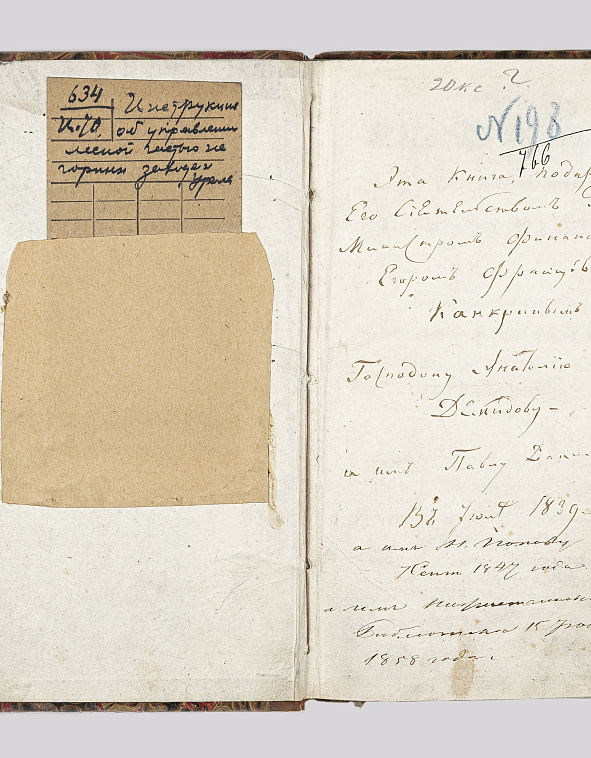 634
И-70
Инструкция
об управлении
лесной частью на
горных заводах
Урала
20 кс
№ 198
766
Эта книга, подар
Его Сіятельствомъ
Министромъ Финан
Егоромъ Францов
Канкринымъ
Господину Анатолію
Демидову —
а имъ Павлу Дани
Въ Іюлѣ 1839
а имъ
Сент 1847 года
а имъ
Библіотека
1858 года.